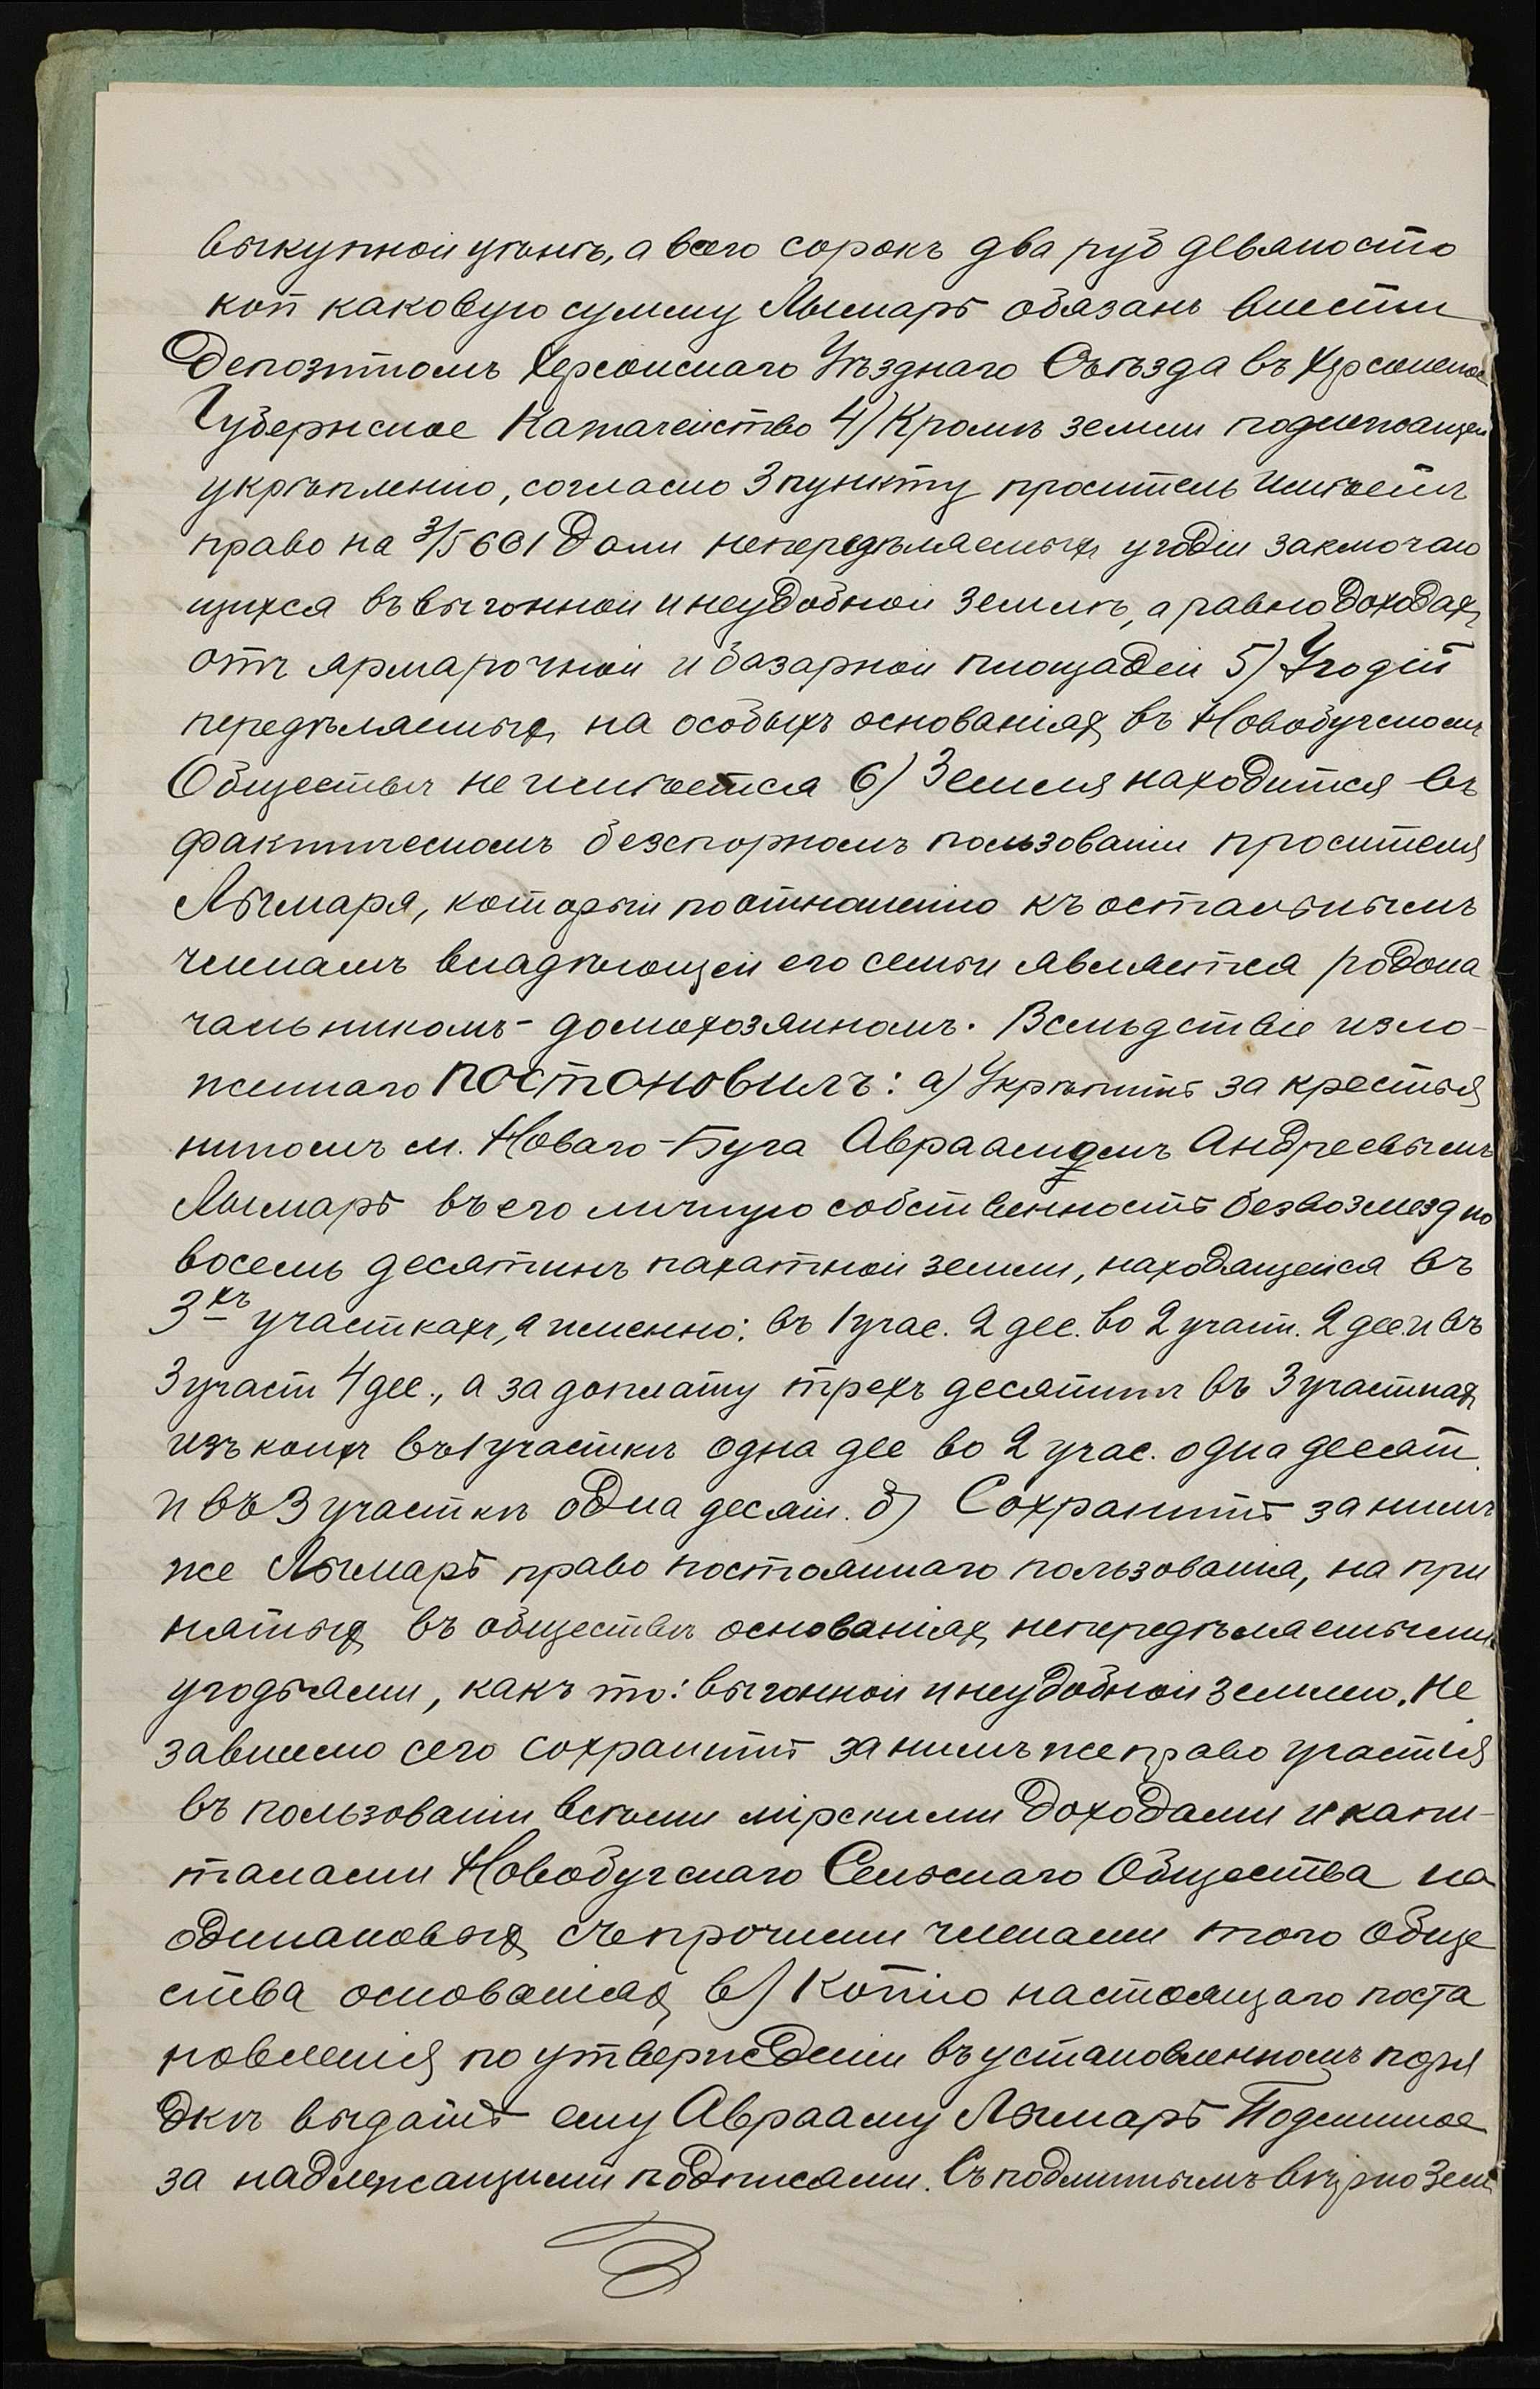 выкупной цѣнѣ, а всего сорокъ два руб девяносто
коп каковую сумму Лымарь обязанъ внести
Депозитомъ Херсонскаго Уѣзднаго Съѣзда въ Херсонское
Губернское Казначейство 4) Кромѣ земли подлежащей
укрѣпленію, согласно 3 пункту проситель имѣетъ
право на 3/5661 Доли непередѣляемыхъ угодій заключаю
щихся въ выгонной и неудобной землѣ, а равно доходахъ
отъ ярмарочной и базарной площадей 5) Угодій
передѣляемыхъ на особыхъ основаніяхъ въ Новобугскомъ
Обществѣ не имѣется 6) Земля находится въ
фактическомъ безспорномъ пользованіи просителя
Лымаря, который по отношенію къ остальнымъ
членамъ владѣющей его семьи является родона
чальникомъ-домохозяиномъ. Вслѣдствіе изло-
женнаго постановилъ: а) Укрѣпить за крестья
ниномъ м. Новаго-Буга Авраамомъ Андреевымъ
Лымарь въ его личную собственность безвозмездно
восемь десятинъ пахатной земли, находящейся въ
3хъ участкахъ, а именно: въ 1 учас. 2 дес. во 2 участ. 2 дес. и въ
3 участ 4 дес., а за доплату трехъ десятинъ въ 3 участкахъ
изъ коихъ въ 1 участкѣ одна дес во 2 учас. одна десят.
и въ 3 участкѣ одна десят. б) Сохранить за нимъ
же Лымарь право постояннаго пользованія, на при
нятыхъ въ обществѣ основаніяхъ, непередѣляемыми
угодьями, какъ то: выгонной и неудобной землею. Не
зависимо сего сохранить за нимъ же право участія
въ пользованіи всѣми мірскими доходами и капи-
талами Новобугскаго Сельскаго Общества на
одинаковыхъ съ прочими членами того Обще
ства основаніяхъ в) Копію настоящаго поста
новленія по утвержденіи въ установленномъ поря
дкѣ выдать ему Аврааму Лымарь Подлинное
за надлежащими подписями. Съ подлиннымъ вѣрно Зем